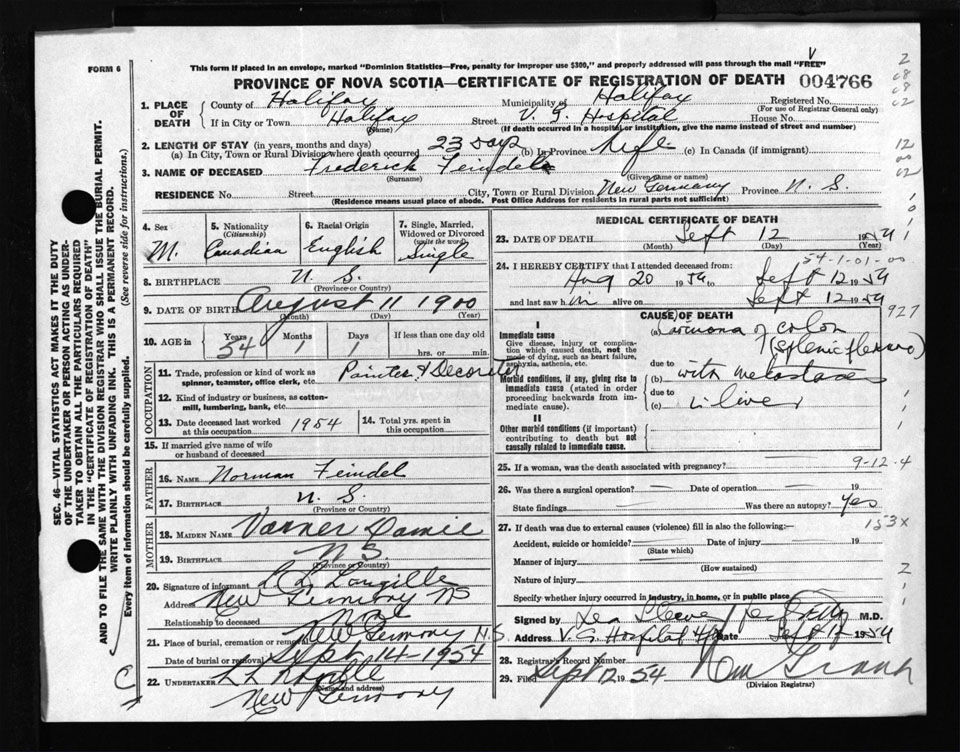 FORM 6
This form if placed in an envelope, marked "Dominion Statistics—Free, penalty for improper use $300," and properly addressed will pass through the mail "FREE"
PROVINCE OF NOVA SCOTIA—CERTIFICATE OF REGISTRATION OF DEATH 004766
1. PLACE OF DEATH
County of Halifax Municipality of Halifax Registered No.
(For use of Registrar General only)
If in City or Town Halifax Street V. G. Hospital House No.
(Name) (If death occurred in a hospital or institution, give the name instead of street and number)
2. LENGTH OF STAY (in years, months and days)
(a) In City, Town or Rural Division where death occurred 23 days (b) In Province Life (c) In Canada (if immigrant)
3. NAME OF DECEASED Frederick Feindel
(Surname) (Given name or names)
RESIDENCE No. Street City, Town or Rural Division New Germany Province N. S.
(Residence means usual place of abode. Post Office Address for residents in rural parts not sufficient)
4. Sex M.
5. Nationality (Citizenship) Canadian
6. Racial Origin English
7. Single, Married, Widowed or Divorced (write the word) Single
8. BIRTHPLACE N. S.
(Province or Country)
9. DATE OF BIRTH August 11 1900
(Month) (Day) (Year)
10. AGE in Years 54 Months 1 Days 1 If less than one day old
hrs. or min.
OCCUPATION
11. Trade, profession or kind of work as spinner, teamster, office clerk, etc. Painter & Decorator
12. Kind of industry or business, as cotton-mill, lumbering, bank, etc.
13. Date deceased last worked at this occupation 1954
14. Total yrs. spent in this occupation
15. If married give name of wife or husband of deceased
FATHER
16. NAME Norman Feindel
17. BIRTHPLACE N. S.
(Province or Country)
MOTHER
18. MAIDEN NAME Varner
19. BIRTHPLACE N S
(Province or Country)
20. Signature of informant L L Langille
Address New Germany NS
Relationship to deceased
21. Place of burial, cremation or removal New Germany N.S.
Date of burial or removal Sept 14-1954
22. UNDERTAKER
(Name and address)
New Germany
MEDICAL CERTIFICATE OF DEATH
23. DATE OF DEATH Sept 12 1954
(Month) (Day) (Year)
54-1-01-00
24. I HEREBY CERTIFY that I attended deceased from
Aug 20 1954 to Sept 12 1954
and last saw h im alive on Sept 12 1954
927
CAUSE OF DEATH
I
Immediate cause
Give disease, injury or complication which caused death, not the mode of dying, such as heart failure, asphyxia, asthenia, etc.
(a) Carcinoma of colon
(splenic flexure)
due to
Morbid conditions, if any, giving rise to immediate cause (stated in order proceeding backwards from immediate cause).
(b) with metastases
due to
(c) in liver
II
Other morbid conditions (if important) contributing to death but not causally related to immediate cause.
25. If a woman, was the death associated with pregnancy? 9-12-4
26. Was there a surgical operation? Date of operation 19
State findings Was there an autopsy? Yes
153X
27. If death was due to external causes (violence) fill in also the following:—
Accident, suicide or homicide? Date of injury 19
(State which)
Manner of injury
(How sustained)
Nature of injury
Specify whether injury occurred in industry, in home, or in public place
Signed by M.D.
Address V. G. Hospital Date Sept 12 1954
28. Registrar's Record Number
29. Filed Sept 12 1954
(Division Registrar)
SEC. 46—VITAL STATISTICS ACT MAKES IT THE DUTY
OF THE UNDERTAKER OR PERSON ACTING AS UNDER-
TAKER TO OBTAIN ALL THE PARTICULARS REQUIRED
IN THE "CERTIFICATE OF REGISTRATION OF DEATH"
AND TO FILE THE SAME WITH THE DIVISION REGISTRAR WHO SHALL ISSUE THE BURIAL PERMIT.
WRITE PLAINLY WITH UNFADING INK. THIS IS A PERMANENT RECORD.
Every item of information should be carefully supplied. (See reverse side for instructions.)